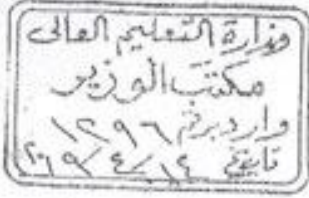 وزارة التعليم العالى
مكتب الوزير
وارد برقم ١٢٩٦
تاريخ ١٤/٤/٢٠١٩